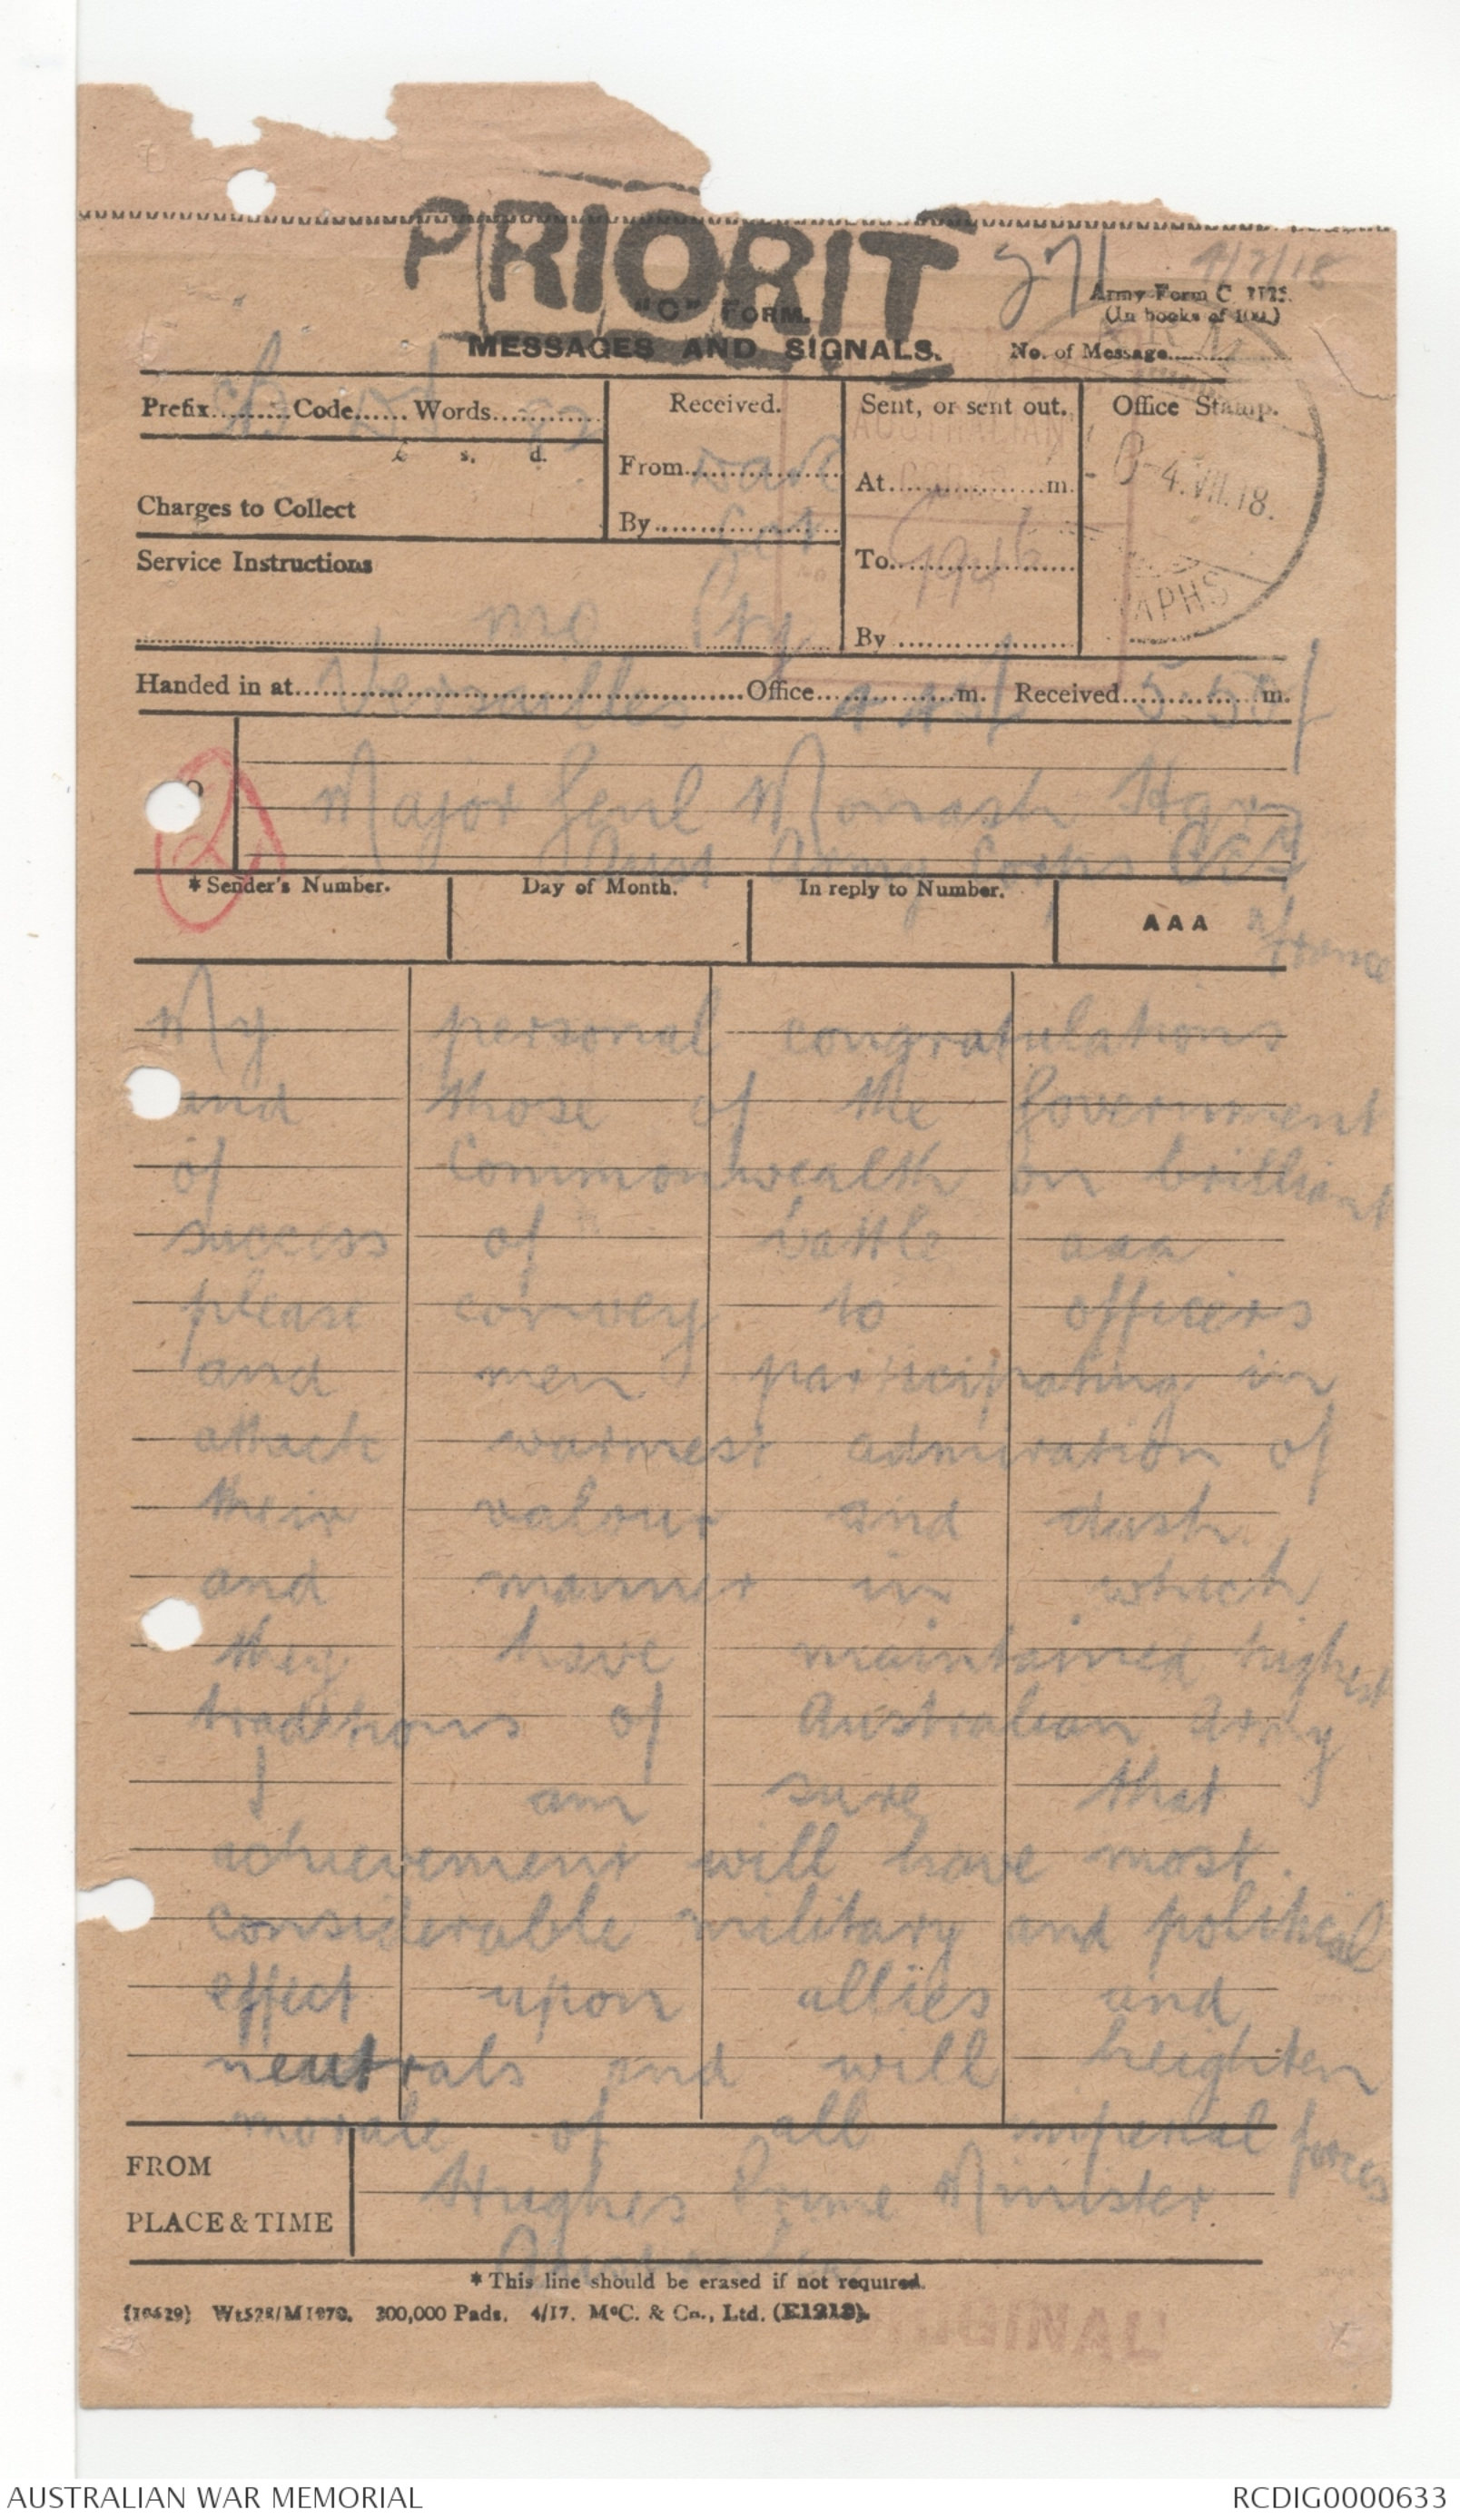 PRIORIT
271 4/7/18
"C" FORM.
Army Form C. 2123.
(In books of 100.)
MESSAGES AND SIGNALS.
No. of Message
Prefix SB Code Words 82
Received.
Sent, or sent out.
Office Stamp.
£ s. d.
From
At m.
4.VII.18.
Charges to Collect
By
To
APHS
AUSTRALIAN
CORPS
Service Instructions
By
Handed in at Versailles Office m. Received 5.50 m.
2
Major Genl Monash Hqrs
Aust Army Corps
France
* Sender's Number.
Day of Month.
In reply to Number.
AAA
My personal congratulations
and those of the Government
of Commonwealth on brilliant
success of battle aaa
please convey to officers
and men participating in
attack warmest admiration of
their valour and dash
and manner in which
they have maintained highest
traditions of Australian army
I am sure that
achievement will have most
considerable military and political
effect upon allies and
neutrals and will heighten
morale of all imperial forces
FROM
PLACE & TIME
Hughes Prime Minister
* This line should be erased if not required.
(10629) Wt528/M1970. 300,000 Pads. 4/17. McC. & Co., Ltd. (E1213).
AUSTRALIAN WAR MEMORIAL
RCDIG0000633